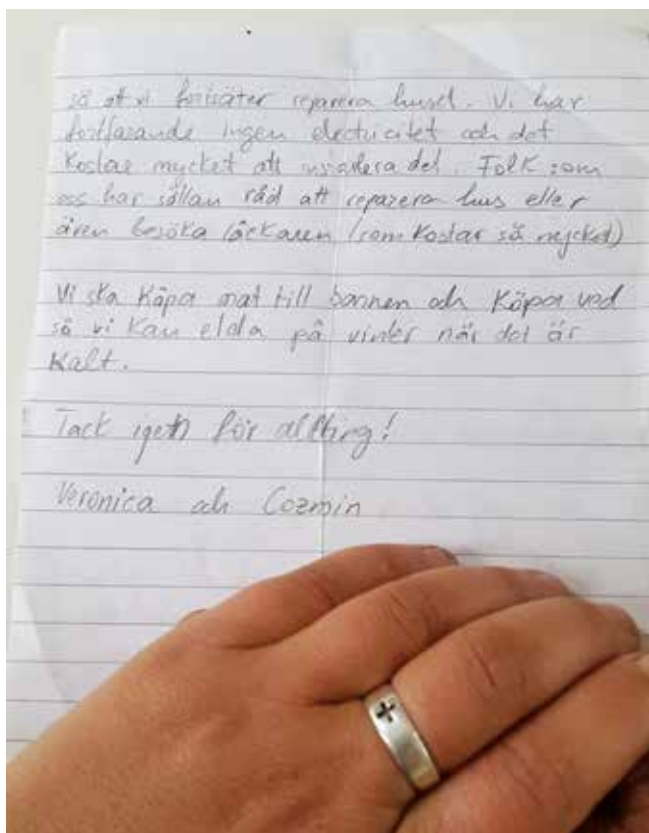 så att vi fortsäter reparera huset. Vi har
fortfarande ingen electricitet och det
kostar mycket att det. Folk som
oss har sällan råd att reparera hus eller
även besöka läckaren (som kostar så mycket)
Vi ska köpa mat till barnen och köpa ved
så vi kan elda på vinter när det är
kalt.
Tack igen för allting!
Veronica och Cozmin